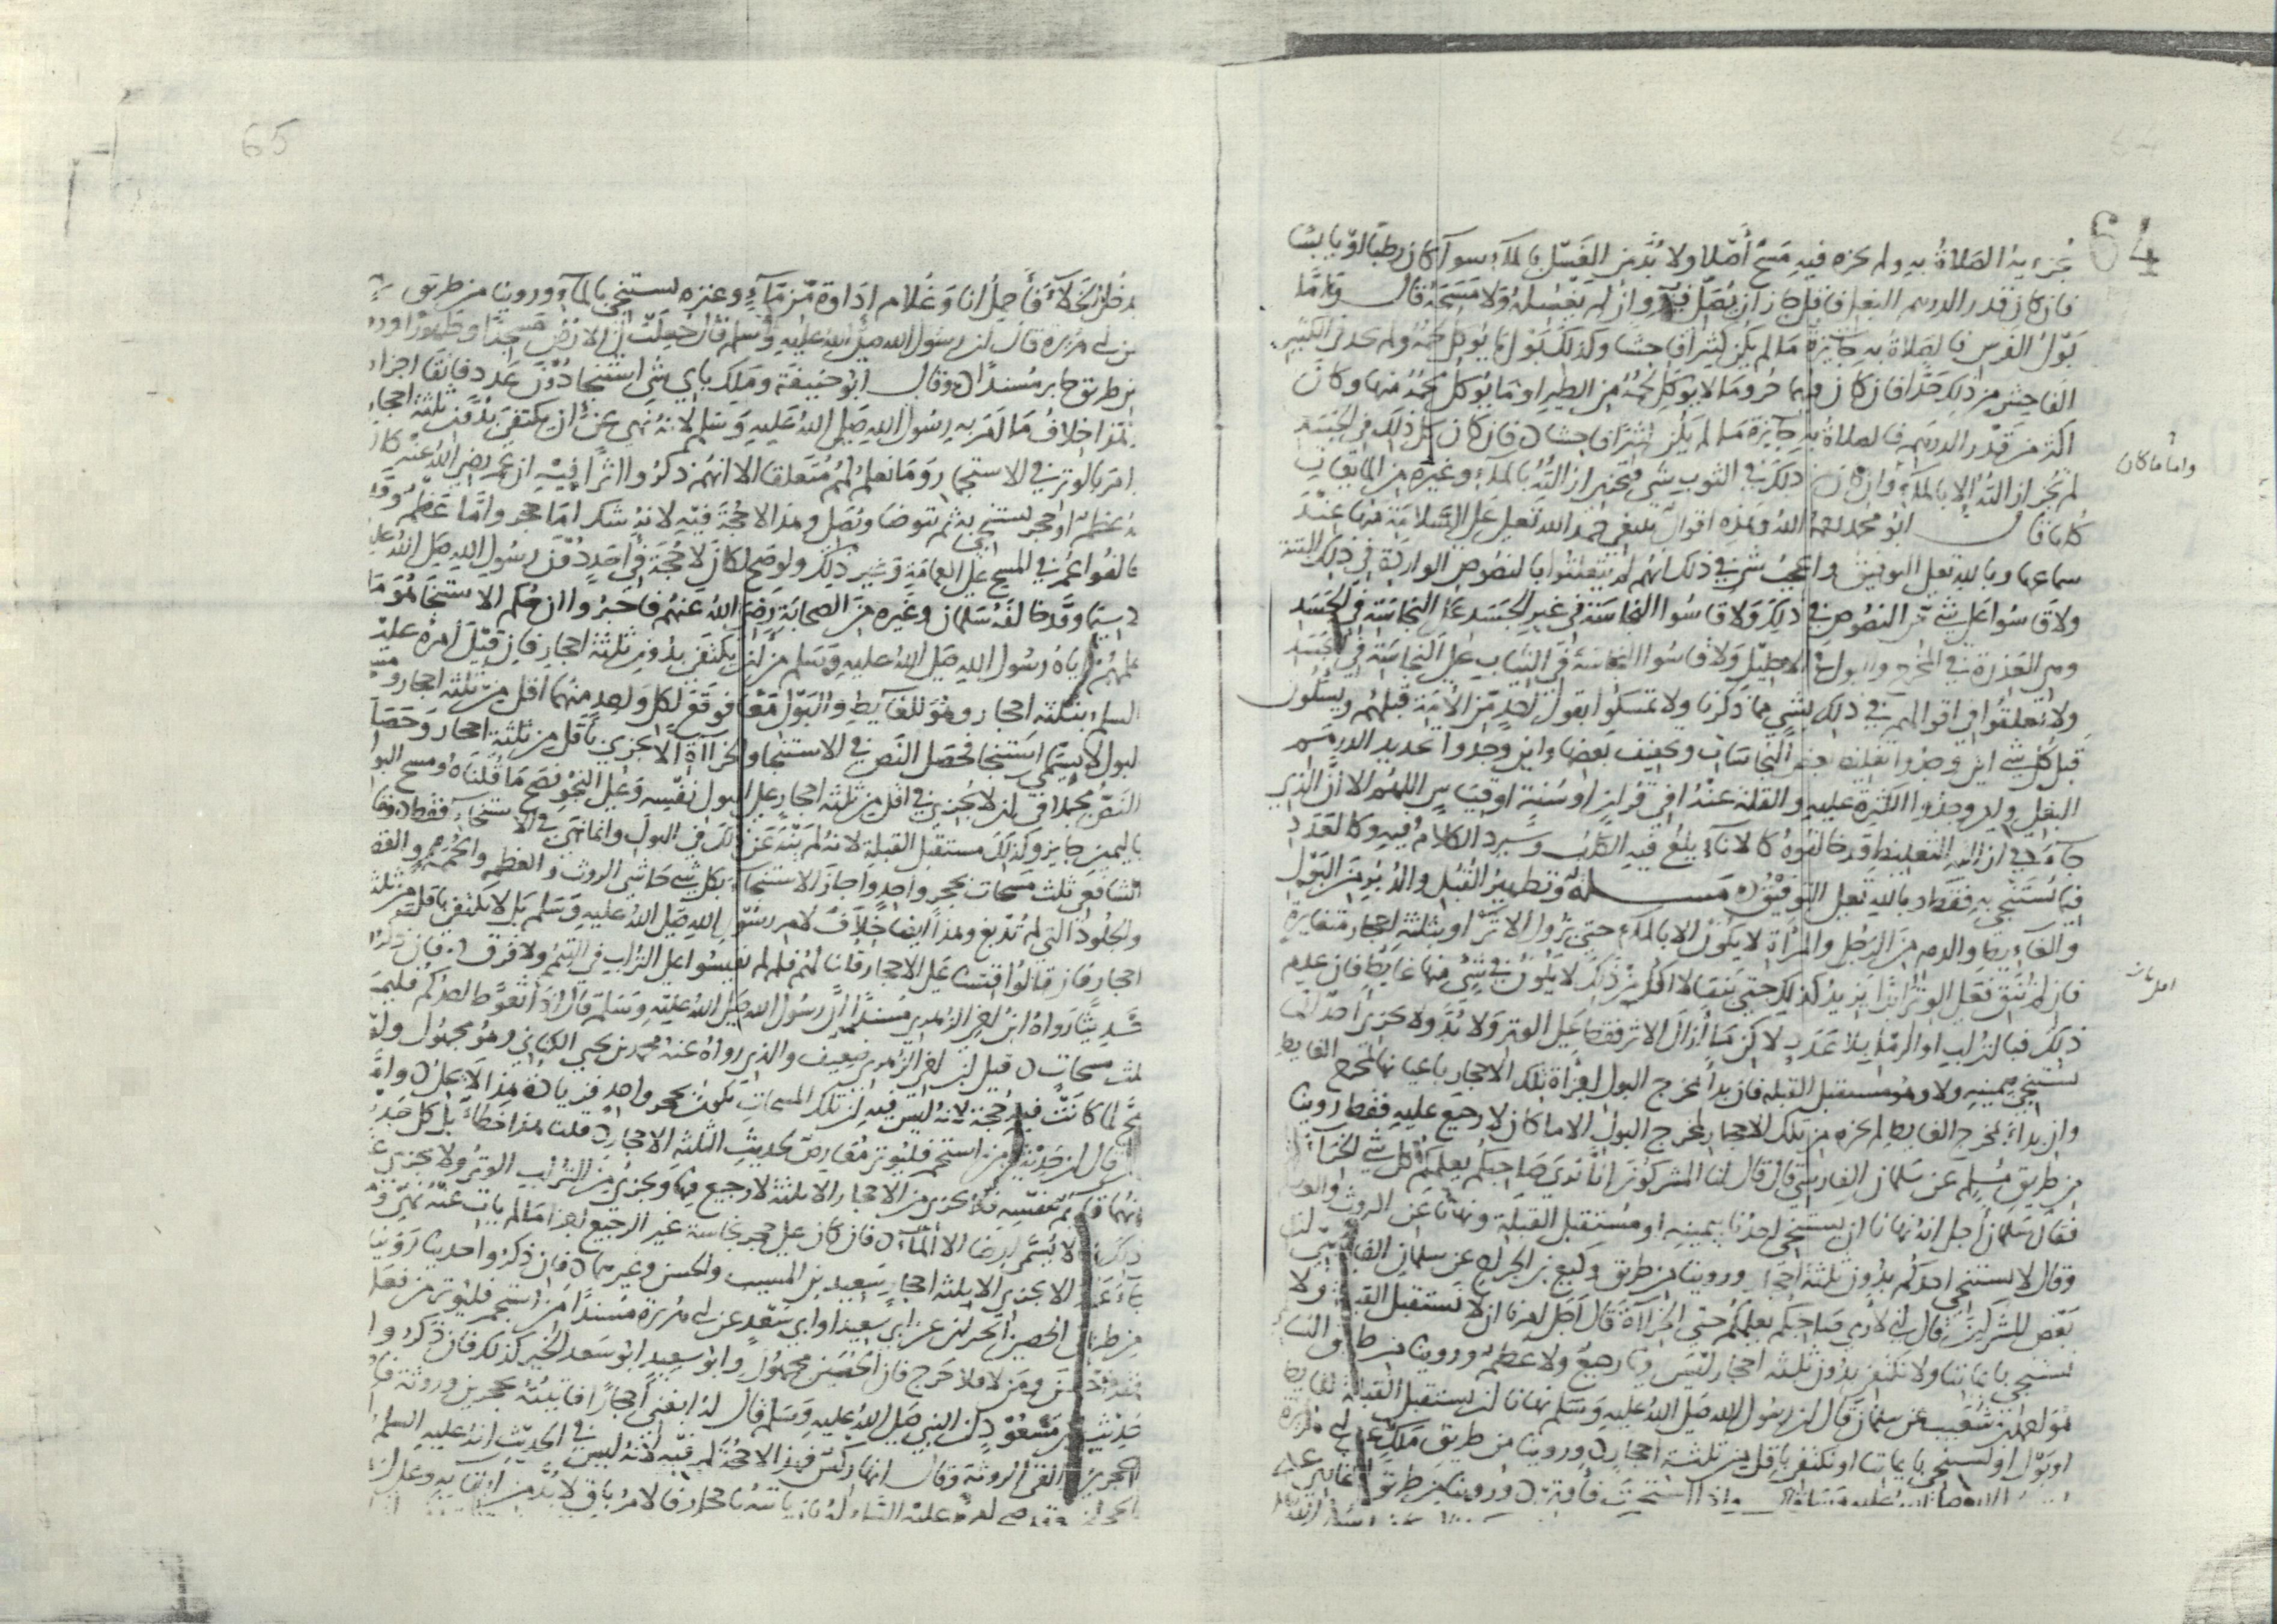 64
تجزيه الصلاة به ولم يجزه فيه مسح أصلا ولا بد من الغسل بالماء سوا كان رطبا أو يابسا
فان كان قدر الدرهم البغلي فاقل جاز ان يصلي فيه وان لم يغسله ولا مسحه قال واما
بول الفرس فالصلاة به جايزة ما لم يكن كثيرا فاحشا وكذلك بول ما يوكل لحمه ولم يحد في الكثير
الفاحش من ذلك حدا فان كان منهما خرو ما لا يوكل لحمه من الطير او ما يوكل لحمه منها وكان
اكثر من قدر الدرهم فالصلاة به جايزة ما لم يكن كثيرا فاحشا فان كان كل ذلك في الجسد
لم تجز ازالته إلا بالماء وان كان ذلك في الثوب شي فتجزي ازالته بالماء وغيره من المايعات
واما ما كان
كلها قال ابو محمد رحمه الله وهذه اقوال ينبغي حمد الله تعلى على السلامة منها عند
سماعها وبالله تعلى التوفيق واعجب شي في ذلك انهم لم يتعلقوا بالنصوص الواردة في ذلك البتة
ولا قاسوا على شي من النصوص في ذلك ولا قاسوا النجاسة في غير الجسد على النجاسة في الجسد
وهي العذرة في المخرج والبول في الاحليل ولا قاسوا النجاسة في الثياب على النجاسة في الجسد
ولا تعلقوا في اقوالهم في ذلك بشي مما ذكرنا ولا تمسكوا بقول احد من الايمة قبلهم ويسلون
قبل كل شي اين وجدوا تغليظ بعض النجاسات وتخفيف بعضها واين وجدوا تحديد الدرهم
البغلي واين وجدوا الكثرة عليه والقلة عنه افي قران او سنة او قياس اللهم الا ان الذي
جاء في ازالته التغليظ قد خالفوه كالاناء يلغ فيه الكلب وسيرد الكلام فيه وكالعدد
فيما يستنجى به فقط وبالله تعلى التوفيق مسلة وتطهير القبل والدبر من البول
والغايط والدم من الرجل والمرأة لا يكون الا بالماء حتى يزول الاثر او بثلثة احجار متغايرة
فان لم تنق فعلى الوتر ابدا يزيد كذلك حتى ينقى لا اقل من ذلك لا يكون في شي منها غايط فان عدم
ذلك فبالتراب او الرمل بلا عدد لاكن ما أزال الاثر فقط على الوتر ولا بد ولا يجزي أحدا ان
يستنجي بيمينه ولا وهو مستقبل القبلة فان بدأ بمخرج البول اجزأته تلك الاحجار باعيانها لمخرج الغايط
وان بدأ بمخرج الغايط لم يجزه من تلك الاحجار لمخرج البول الا ما كان لا رجيع عليه فقط روينا
من طريق مسلم عن سلمان الفارسي قال قال لنا المشركون انا نرى صاحبكم يعلمكم كل شي الخراءة
فقال سلمان أجل انه نهانا ان يستنجي احدنا بيمينه او مستقبل القبلة ونهانا عن الروث والعظام
وقال لا يستنجي احدكم بدون ثلثة احجار وروينا من طريق وكيع بن الجراح عن سلمان الفارسي ان
بعض المشركين قال اني لأرى صاحبكم يعلمكم حتى الخراءة قال أجل امرنا ان لا نستقبل القبلة ولا
نستنجي بايماننا ولا نكتفي بدون ثلثة احجار ليس فيها رجيع ولا عظم وروينا من طريق
شعيب عن سلمان قال ان رسول الله صلى الله عليه وسلم نهانا ان نستقبل القبلة لغايط
او بول او نستنجي بايماننا او نكتفي باقل من ثلثة احجار وروينا من طريق ملك
الله صلى الله عليه وسلم قال واذا استجمرت فاوتر وروينا من طريق
65
يدخل الخلاء فأحمل انا وغلام اداوة من ماء وعنزة يستنجي بالماء وروينا من طريق
بن ابي هريرة قال ان رسول الله صلى الله عليه وسلم قال جعلت لي الارض مسجدا وطهورا ورو
من طريق جابر مسندا وقال ابو حنيفة وملك باي شي استنجا دون عدد فانقا اجزاه
وهذا خلاف ما امر به رسول الله صلى الله عليه وسلم لانه نهى عن ان يكتفى بدون ثلثة احجار
امر بالوتر في الاستجمار وما نعلم لهم متعلقا الا انهم ذكروا اثرا فيه ان عمر رضي الله عنه كان
له عظم او حجر يستنجي به ثم يتوضا ويصلي وهذا لا حجة فيه لانه شك اما حجر واما عظم وقد
خالفوا عمر في المسح على العمامة وغير ذلك ولو صح لكان لا حجة في احد دون رسول الله صلى الله عليه
لاسيما وقد خالفه سلمان وغيره من الصحابة رضي الله عنهم فاخبروا ان حكم الاستنجا هو ما
علمهم اياه رسول الله صلى الله عليه وسلم من ان لا يكتفى بدون ثلثة احجار فان قيل أمره عليه
السلم بثلثة احجار هو للغايط والبول معا فوقع لكل واحد منهما اقل من ثلثة احجار
البول لا يسمى استنجا فحصل النص في الاستنجا والخراءة الا يجزي باقل من ثلثة احجار وحصل
النص مجملا في ان لا يجزي في اقل من ثلثة احجار على البول نفسه وعلى النجو فصح ما قلناه ومسح البول
باليمين جايز وكذلك مستقبل القبلة لانه لم ينه عن ذلك في البول وانما نهي في الاستنجاء فقط وقال
الشافعي ثلث مسحات بحجر واحد واجاز الاستنجاء بكل شي حاشى الروث والعظم والحمم والقصب
والجلود التي لم تدبغ وهذا ايضا خلاف لامر رسول الله صلى الله عليه وسلم بان لا يكتفى باقل من ثلثة
احجار فان قالوا قسنا على الاحجار قلنا لهم فلم لم تقيسوا على التراب في التيمم ولا فرق فان ذكروا
حديثا رواه ابن اخي الزهري مسندا ان رسول الله صلى الله عليه وسلم قال اذا تغوط احدكم فليمسح
ثلث مسحات قيل ابن اخي الزهري ضعيف والذي رواه عنه محمد بن يحيى الكناني وهو مجهول ولو
صح لما كانت فيه حجة لانه ليس فيه ان تلك المسحات تكون بحجر واحد فزيادة هذا لا تحل واما
من قال ان حديث من استجمر فليوتر معارض لحديث الثلثة الاحجار قلنا هذا خطأ بل كل حديث
منهما قايم بنفسه فلا يجزي من الاحجار الا ثلثة لا رجيع فيها ويجزي من التراب الوتر ولا يجزي
ذكرنا لا يسمر ارضا الا الماء فان كان على حجر نجاسة غير الرجيع اجزا ما لم يات عنه نهي
الا يجزي الا ثلثة احجار سعيد بن المسيب والحسن وغيرهما فان ذكروا حديثا روينا
من طريق الحصين الحراني عن ابي سعيد او ابي سعد عن ابي هريرة مسندا من استجمر فليوتر من فعل
فقد احسن ومن لا فلا حرج فان الحصين مجهول وابو سعيد ابو سعد الخير كذلك فان ذكروا
حديث ابن مسعود ان النبي صلى الله عليه وسلم قال له ابغني أحجارا فاتيته بحجرين وروثة
الحجرين والقى الروثة وقال انها ركس فهذا لا حجة لهم فيه لانه ليس في الحديث انه عليه السلم